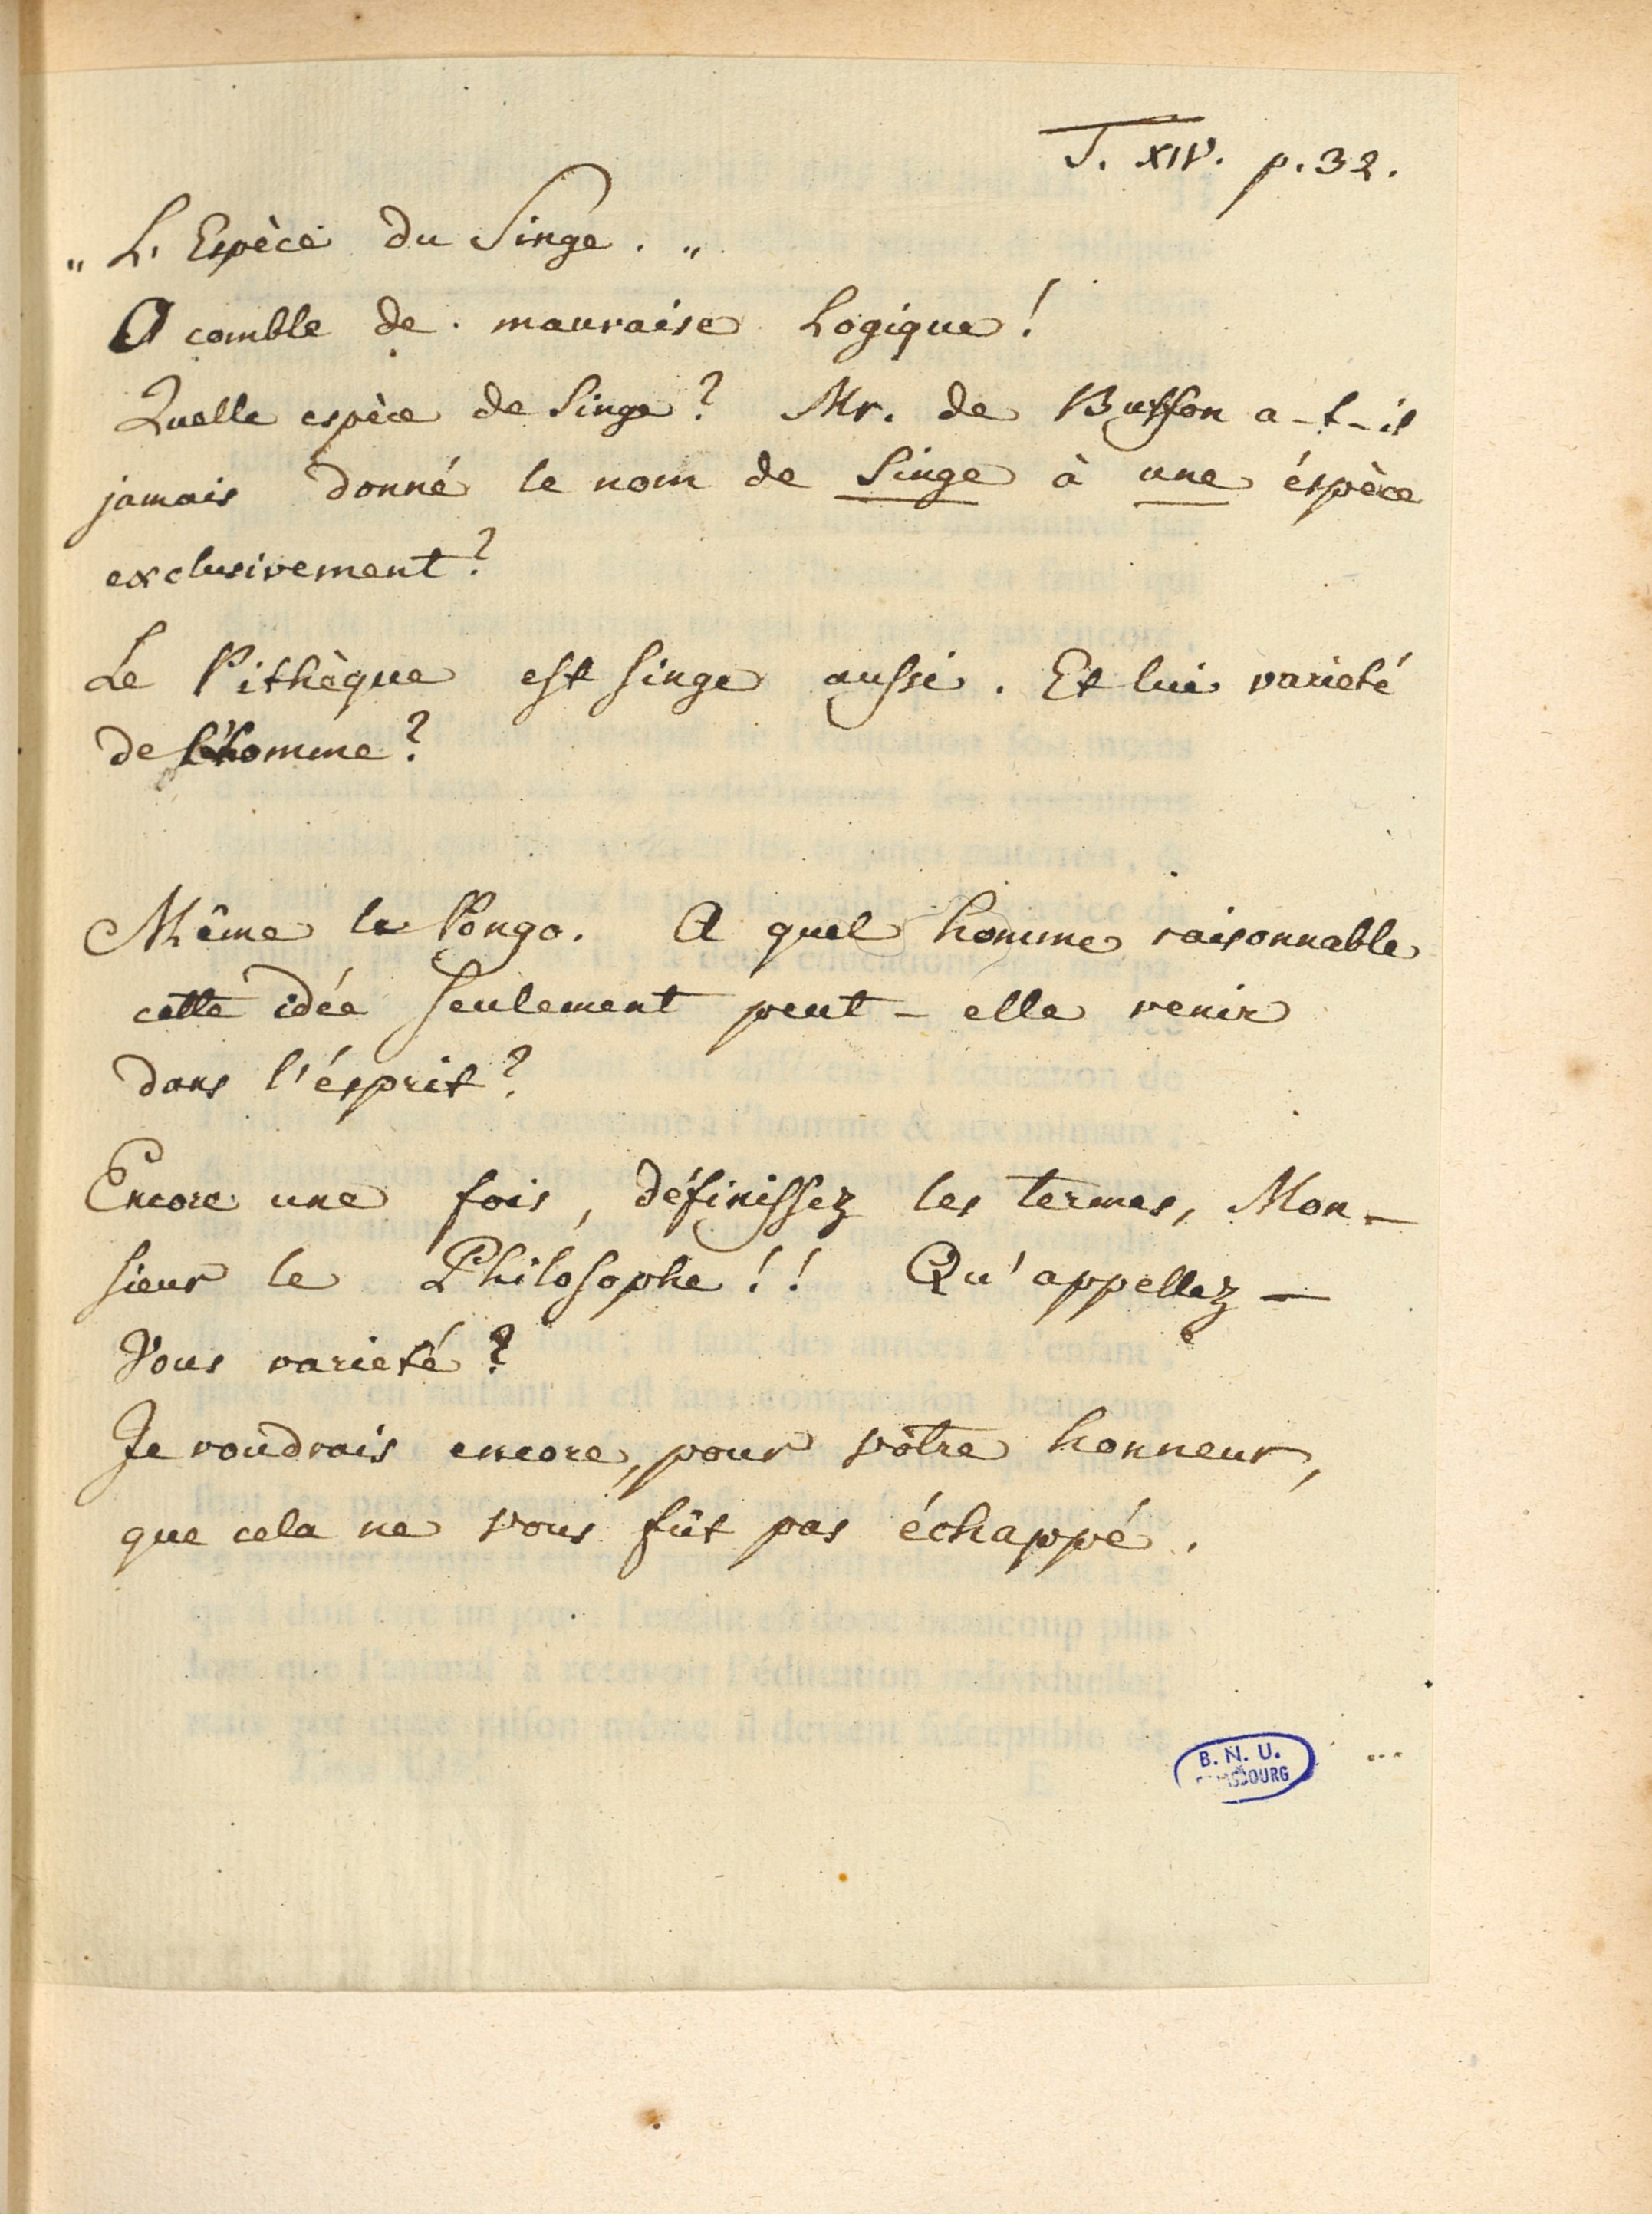 T. XIV. p. 32.
„ L'Espèce du Singe. „
O comble de mauvaise Logique!
Quelle espèce de Singe? Mr. de Buffon a-t-il
jamais donné le nom de Singe à une éspèce
exclusivement?
Le Pithèque est singe aussi. Et lui varieté
de l'homme?
Même le Pongo. A quel homme raisonnable
cette idée seulement peut-elle venir
dans l'ésprit?
Encore une fois, définissez les termes, Mon-
sieur le Philosophe!! Qu'appellez-
Vous varieté?
Je voudrais encore, pour vôtre honneur,
que cela ne vous fût pas échappé.
B. N. U.
STRASBOURG